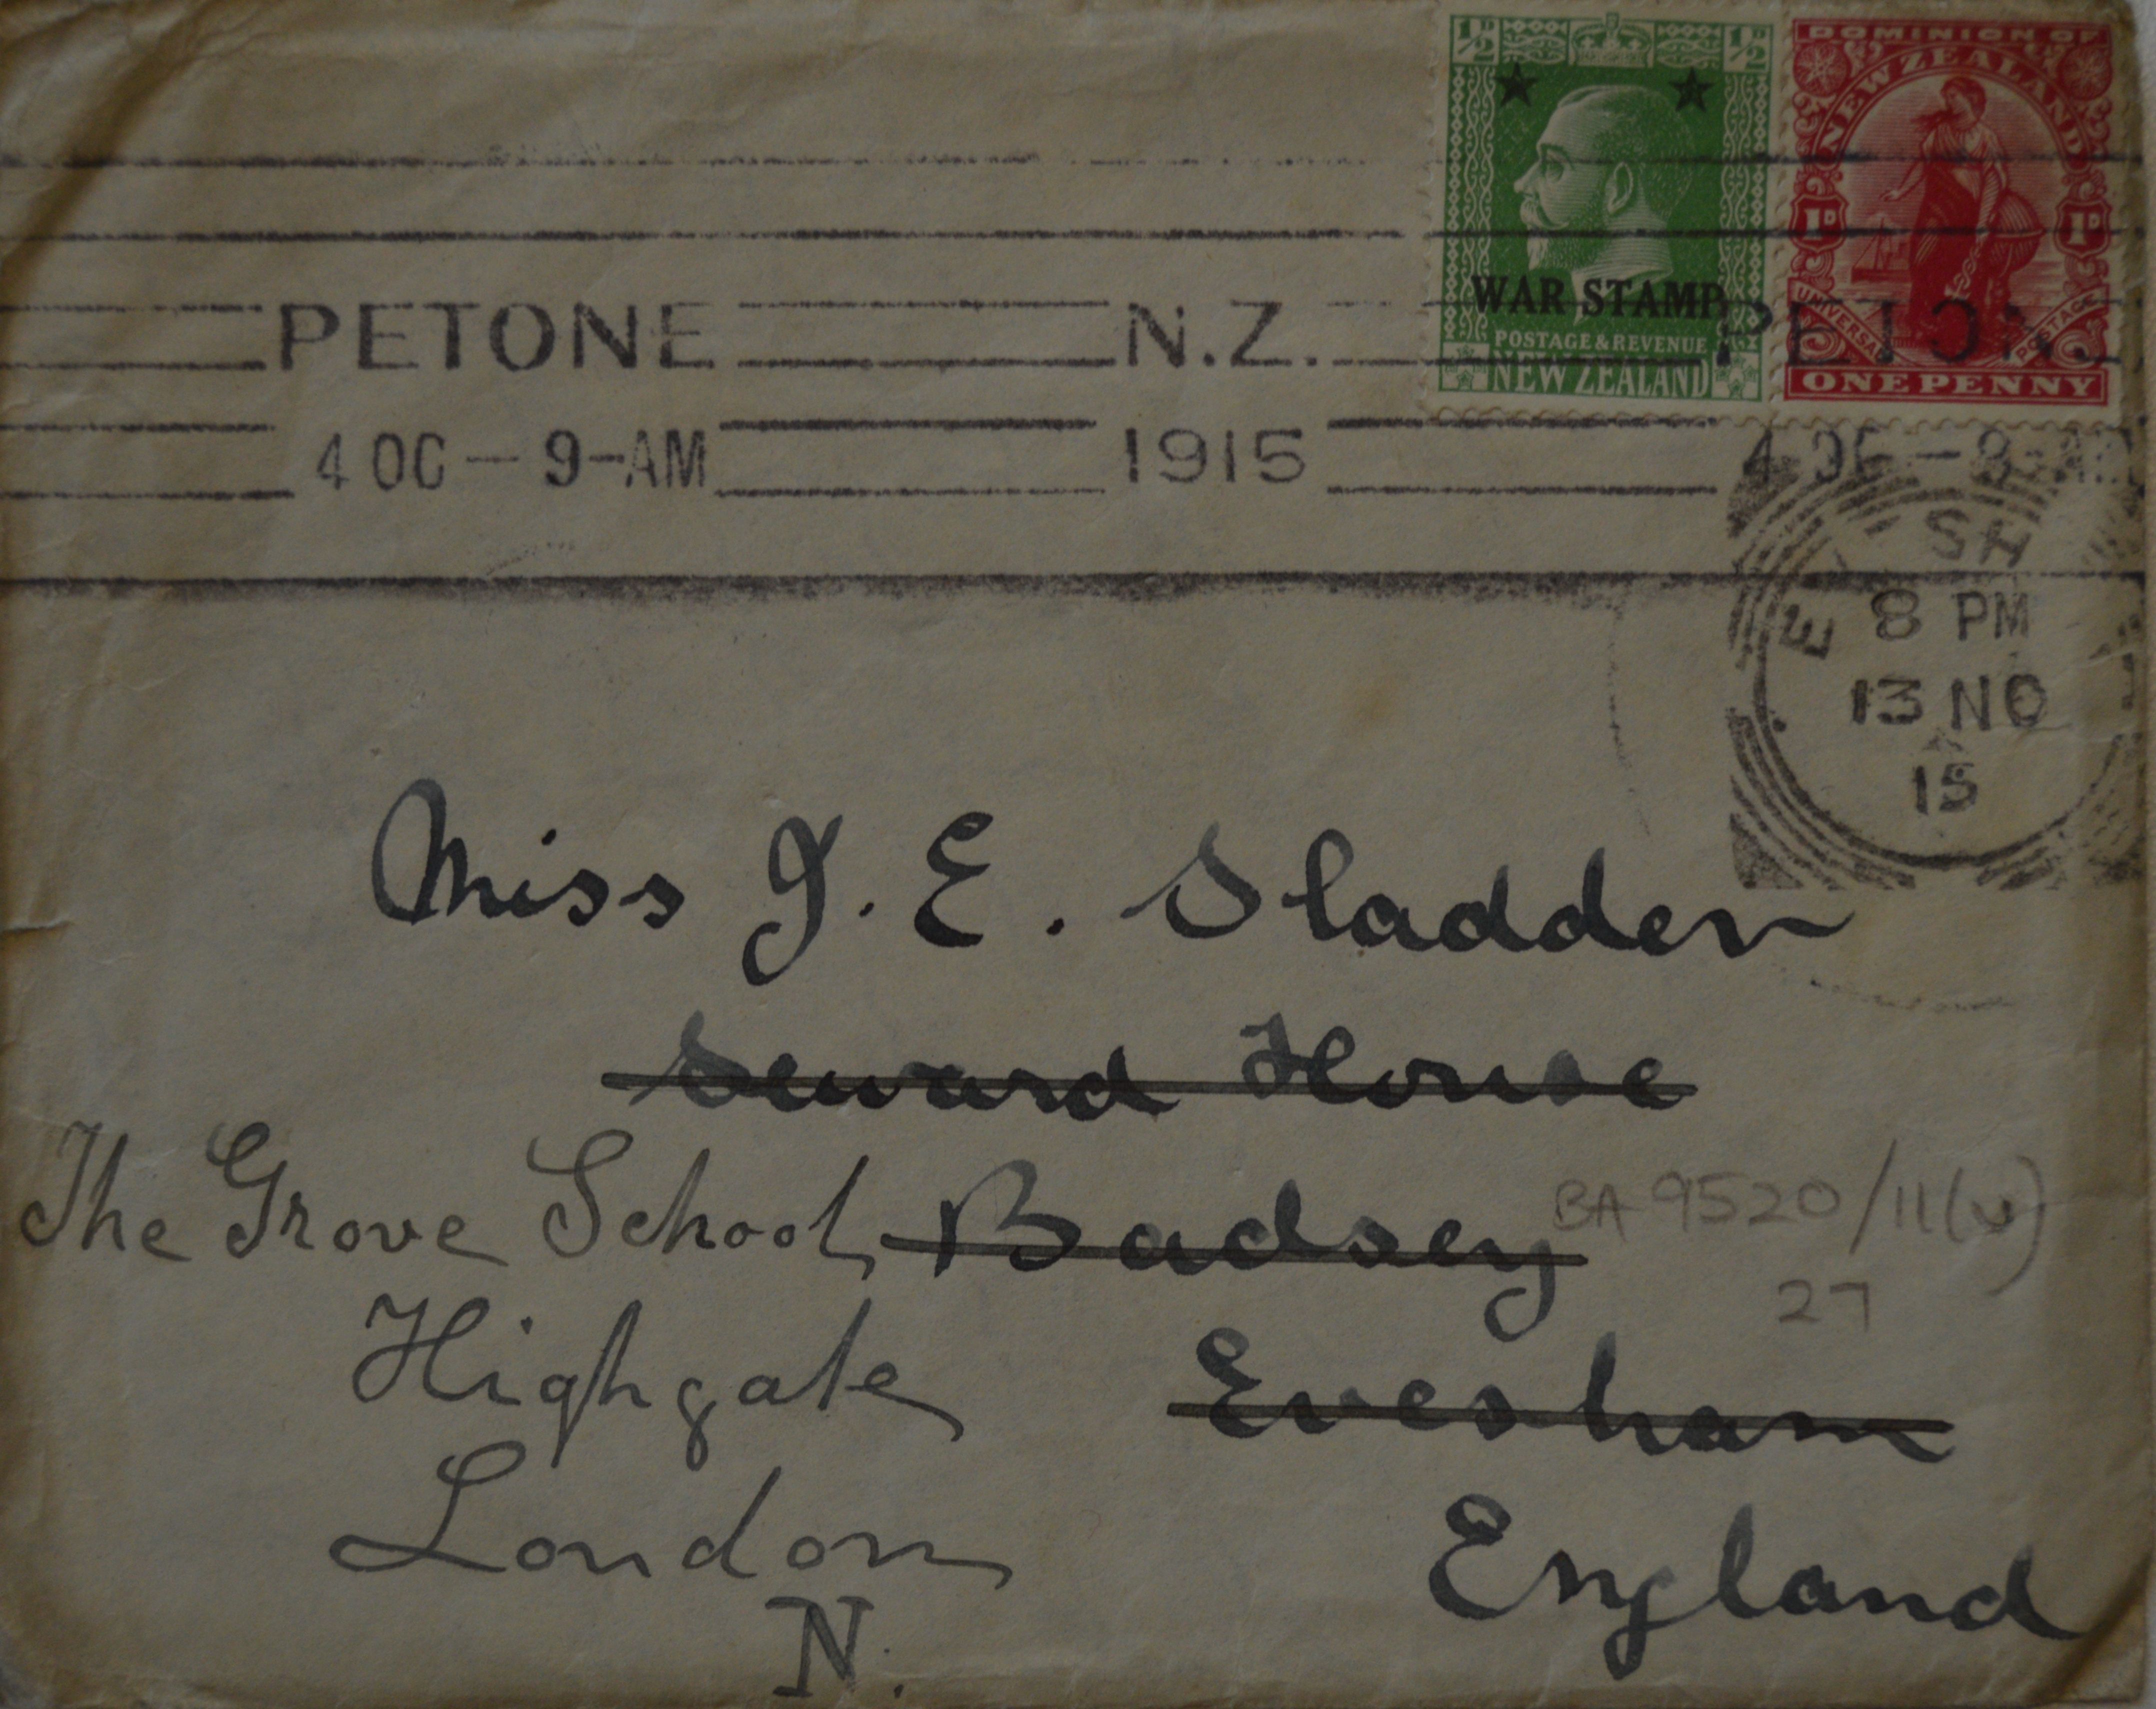 ½D ½D
WAR STAMP
POSTAGE & REVENUE
NEW ZEALAND
DOMINION OF
NEW ZEALAND
1D 1D
UNIVERSAL POSTAGE
ONE PENNY
PETONE N.Z. PETONE
4 OC — 9-AM 1915 4 OC — 9-AM
E SH
8 PM
13 NO
15
Miss J. E. Sladden
Seward House
The Grove School Badsey
BA 9520/11(v)
27
Highgate Evesham
London England
N.